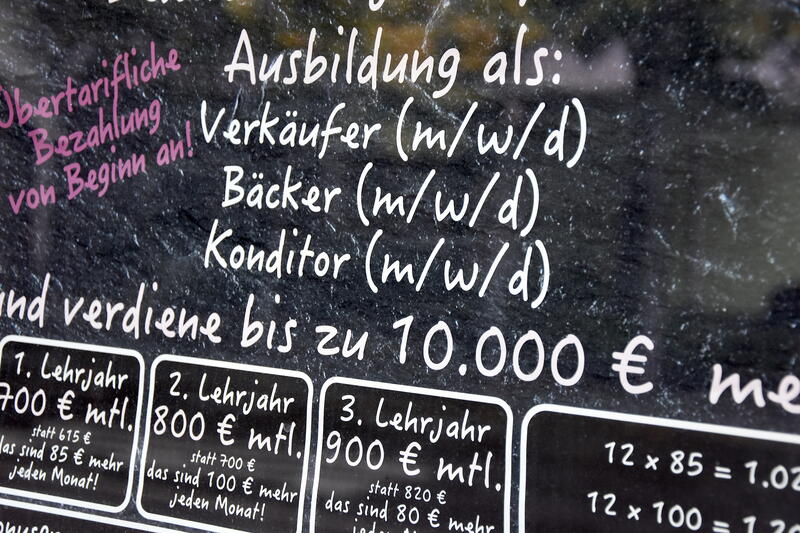 Ausbildung als:
Übertarifliche
Bezahlung
von Beginn an!
Verkäufer (m/w/d)
Bäcker (m/w/d)
Konditor (m/w/d)
und verdiene bis zu 10.000 € me
1. Lehrjahr
700 € mtl.
statt 615 €
das sind 85 € mehr
jeden Monat!
2. Lehrjahr
800 € mtl.
statt 700 €
das sind 100 € mehr
jeden Monat!
3. Lehrjahr
900 € mtl.
statt 820 €
das sind 80 € mehr
12 x 85 = 1.02
12 x 100 = 1.20